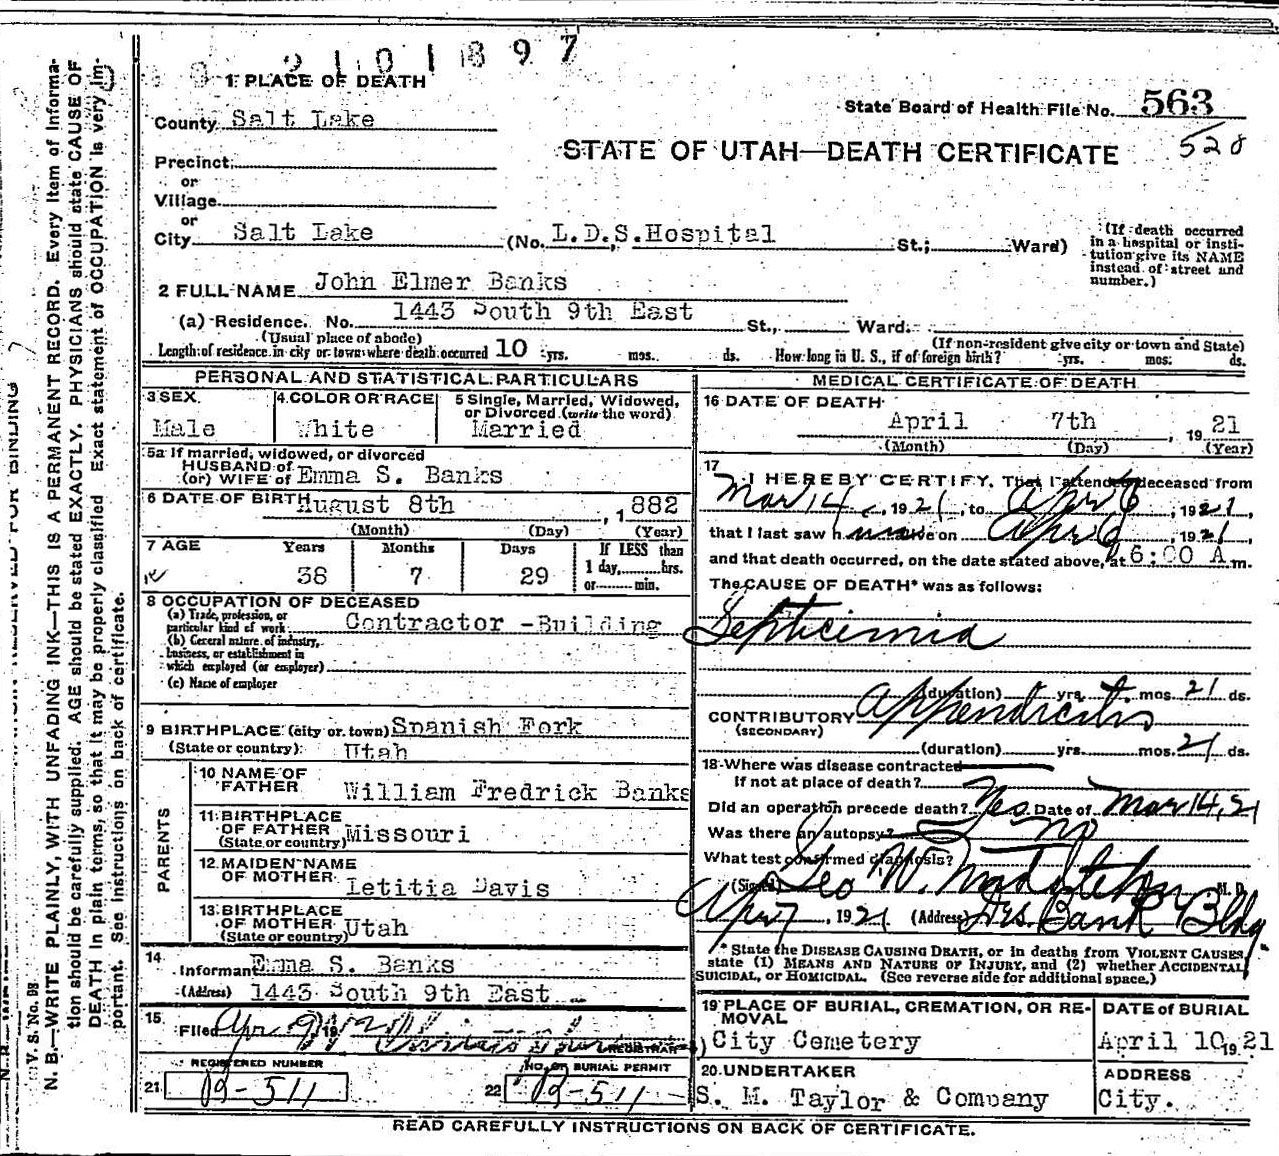 2101897
1 PLACE OF DEATH
State Board of Health File No. 563
528
County Salt Lake
STATE OF UTAH—DEATH CERTIFICATE
Precinct
or
Village
or
City Salt Lake (No. L.D.S. Hospital St.; Ward)
(If death occurred in a hospital or institution give its NAME instead of street and number.)
2 FULL NAME John Elmer Banks
(a) Residence. No. 1443 South 9th East St., Ward.
(Usual place of abode) (If non-resident give city or town and State)
Length of residence in city or town where death occurred 10 yrs. mos. ds. How long in U. S., if of foreign birth? yrs. mos. ds.
PERSONAL AND STATISTICAL PARTICULARS
3 SEX Male
4 COLOR OR RACE White
5 Single, Married, Widowed, or Divorced (write the word) Married
5a If married, widowed, or divorced
HUSBAND of
(or) WIFE of Emma S. Banks
6 DATE OF BIRTH August 8th, 1882
(Month) (Day) (Year)
7 AGE Years Months Days If LESS than
1 day, hrs.
or min.
38 7 29
8 OCCUPATION OF DECEASED
(a) Trade, profession, or particular kind of work Contractor -Building
(b) General nature of industry, business, or establishment in which employed (or employer)
(c) Name of employer
9 BIRTHPLACE (city or town) Spanish Fork
(State or country) Utah
PARENTS
10 NAME OF FATHER William Fredrick Banks
11 BIRTHPLACE OF FATHER (State or country) Missouri
12 MAIDEN NAME OF MOTHER Letitia Davis
13 BIRTHPLACE OF MOTHER (State or country) Utah
14 Informant Emma S. Banks
(Address) 1443 South 9th East
15 Filed Apr 9 19
REGISTRAR
REGISTERED NUMBER
21 D9-511
NO. OF BURIAL PERMIT
22 D9-511
MEDICAL CERTIFICATE OF DEATH
16 DATE OF DEATH
April 7th, 1921
(Month) (Day) (Year)
17 I HEREBY CERTIFY, That I attended deceased from
Mar 14, 1921, to Apr 6, 1921,
that I last saw him alive on Apr 6, 1921,
and that death occurred, on the date stated above, at 6:00 A m.
The CAUSE OF DEATH* was as follows:
Septicimia
(duration) yrs. mos. 21 ds.
CONTRIBUTORY Appendicitis
(SECONDARY)
(duration) yrs. mos. 21 ds.
18 Where was disease contracted
If not at place of death?
Did an operation precede death? Yes Date of Mar 14, 21
Was there an autopsy? no
What test confirmed diagnosis?
(Signed) Geo W. M. D.
Apr 7, 1921 (Address) Des. Bank Bldg.
* State the DISEASE CAUSING DEATH, or in deaths from VIOLENT CAUSES, state (1) MEANS AND NATURE OF INJURY, and (2) whether ACCIDENTAL, SUICIDAL, or HOMICIDAL. (See reverse side for additional space.)
19 PLACE OF BURIAL, CREMATION, OR REMOVAL
City Cemetery
DATE of BURIAL
April 10, 1921
20 UNDERTAKER
S. M. Taylor & Company
ADDRESS
City.
READ CAREFULLY INSTRUCTIONS ON BACK OF CERTIFICATE.
V. S. No. 98
N. B.—WRITE PLAINLY, WITH UNFADING INK—THIS IS A PERMANENT RECORD. Every item of information should be carefully supplied. AGE should be stated EXACTLY. PHYSICIANS should state CAUSE OF DEATH in plain terms, so that it may be properly classified. Exact statement of OCCUPATION is very important. See instructions on back of certificate.